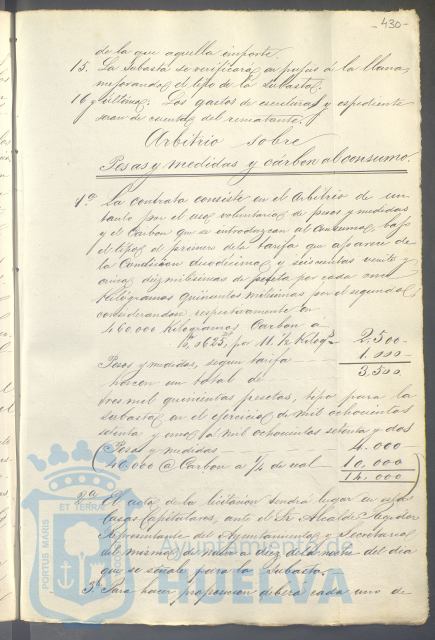 -430-
de la que aquella importe.
15. La Subasta se verificará en pujas á la llana,
mejorando el tipo de la Subasta.
16 y última. Los gastos de escritura y espediente
seran de cuenta del rematante.
Arbitrio sobre
Pesas y medidas y carbon al consumo.
1ª La contrata consiste en el Arbitrio de un
tanto por el uso voluntario de pesos y medidas
y el Carbon que se introduzca al Consumo, bajo
el tipo el primero de la tarifa que aparece de
la Condicion duodécima y seiscientas veinte y
cinco diezmilésimas de peseta por cada
Kilógramos quinientos por el segundo,
considerandose respectivamente en
460.000 Kilógramos Carbon á
0,0625, por 11. ½ Kilogs 2,500-
Pesos y medidas, segun tarifa - - 1.000-
Hacen un total de - - 3,500
tres mil quinientas pesetas, tipo para la
subasta en el ejercicio de mil ochocientos
setenta y uno á mil ochocientos setenta y dos
(Pesos y medidas - - 4.000-
40,000 @ Carbon á ¼ de real - 10,000)
14,000
2ª El acto de la licitacion tendrá lugar en estas
Casas Capitulares, ante el Sr. Alcalde, Regidor
Representante del Ayuntamiento y Secretario
del mismo, de nueve á diez de la noche del dia
que se señale para la Subasta.
3ª Para hacer proposicion deberá cada uno de
PORTUS MARIS ET TERRAE
Ayuntamiento de
HUELVA